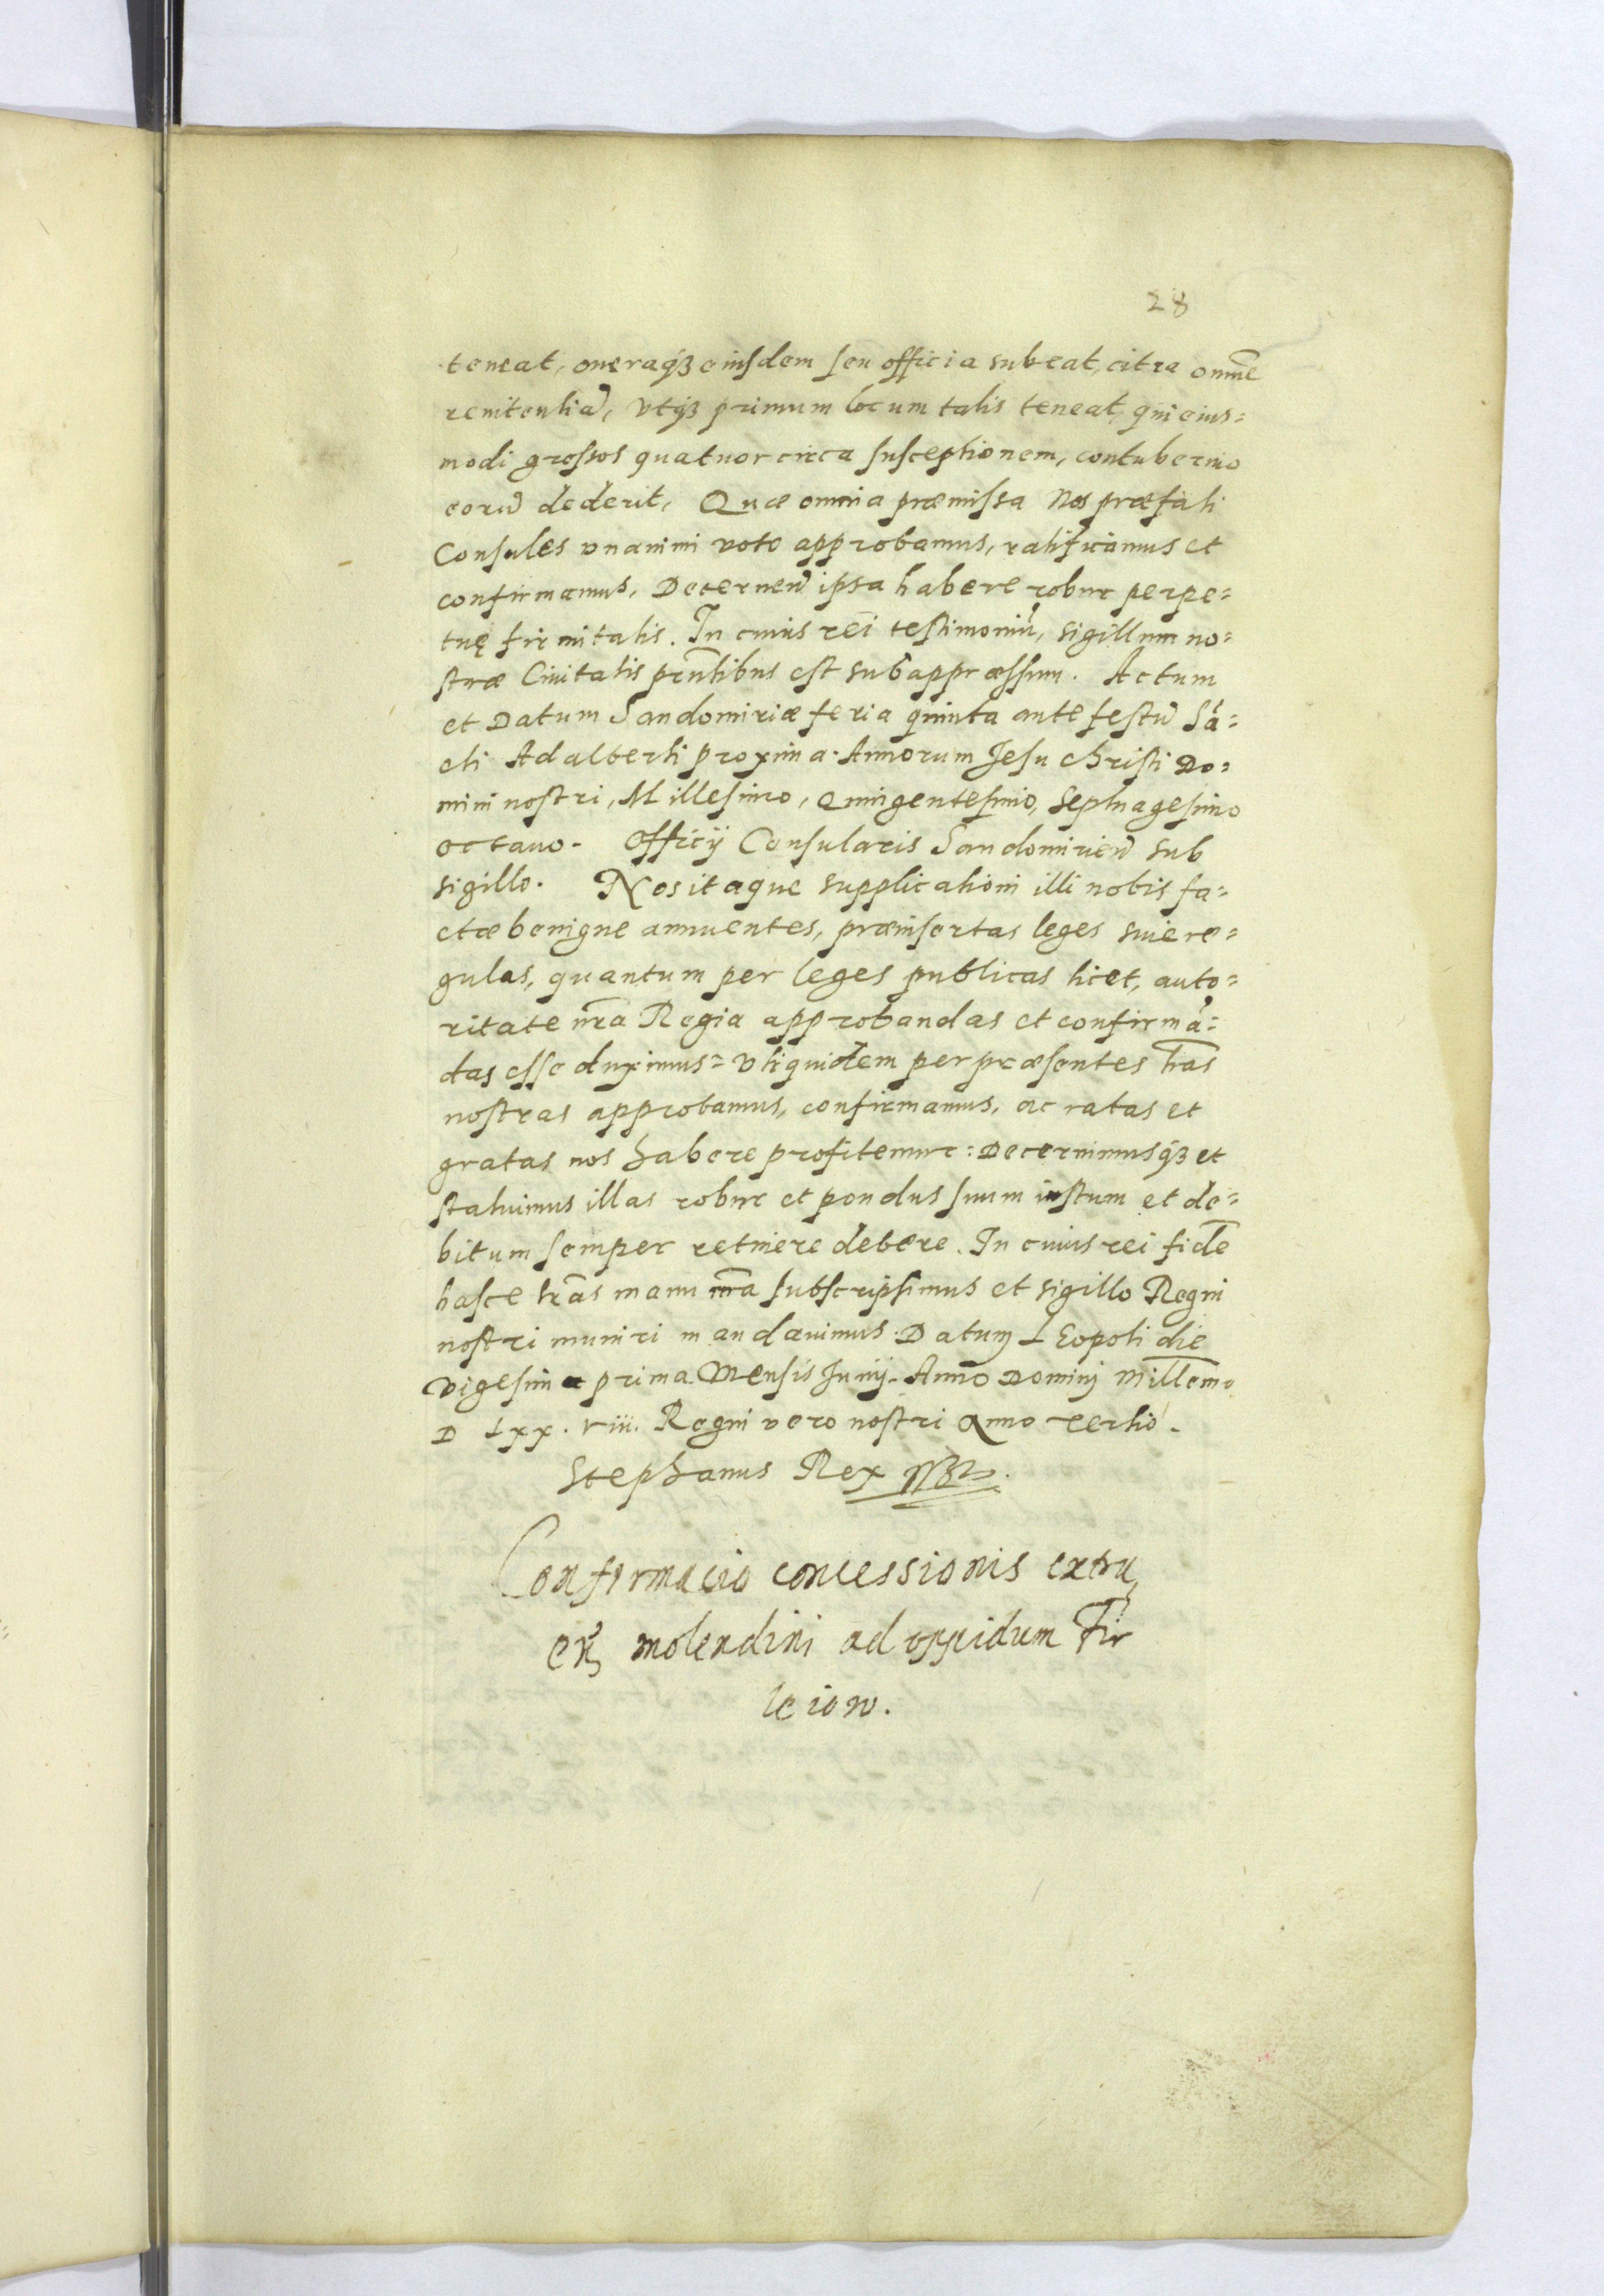 28
teneat, oneraq3 eiusdem seu officia subeat, citra omnē
renitentiā, vtq3 primum locum talis teneat, qui eius=
modi grossos quatuor circa susceptionem, contubernio
eorū dederit, Quæ omnia præmissa Nos præfati
Consules vnanimi voto approbamus, ratificamus et
confirmamus, Decernen̄ ipsa habere robur perpe=
tuę firmitatis. In cuius rei testimoniū, sigillum no=
stræ Ciuitatis pn̄tibus est subappræssum. Actum
et Datum Sandomiriæ feria quinta ante festū Sā=
cti Adalberti proxima. Annorum Jesu christi Do=
mini nostri, Millesimo, Quingentesimo, Septuagesimo
octauo. Officij Consularis Sandomirien̄ sub
sigillo. Nos itaque supplicationi illi nobis fa=
ctæ benigne annuentes, præinsertas leges siue re=
gulas, quantum per leges publicas licet, auto=
ritate nr̄a Regia approbandas et confirmā=
das esse duximus= Vtiquidem per præsentes lr̄as
nostras approbamus, confirmamus, ac ratas et
gratas nos habere profitemur: Decernimusq3 et
statuimus illas robur et pondus suum iustum et de=
bitum semper retinere debere. In cuius rei fidē
hasce lr̄as manu nr̄a subscripsimus et sigillo Regni
nostri muniri mandauimus. Datum LEopoli die
vigesima prima Mensis Junij. Anno Dominj Millemo
D Lxx. viii. Regni vero nostri Anno tertio.
Stephanus Rex
Confirmacio concessionis extru
en̄ molendini ad oppidum Tir
leiow.